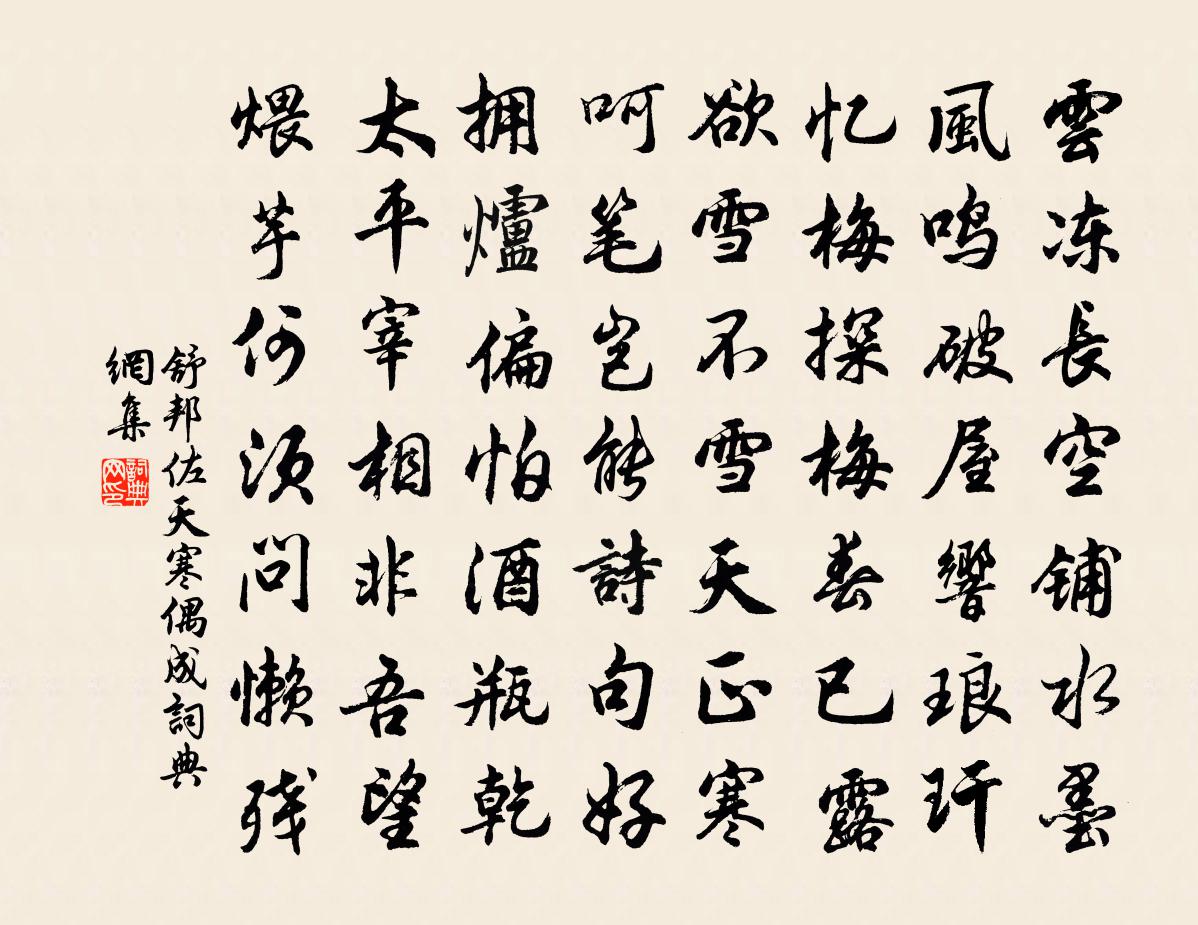 雲冻長空铺水墨
風鸣破屋響琅玕
忆梅探梅春已露
欲雪不雪天正寒
呵笔岂能詩句好
拥爐偏怕酒瓶乾
太平宰相非吾望
煨芋何须问懒残
舒邦佐天寒偶成詞典
網集
詞典网印